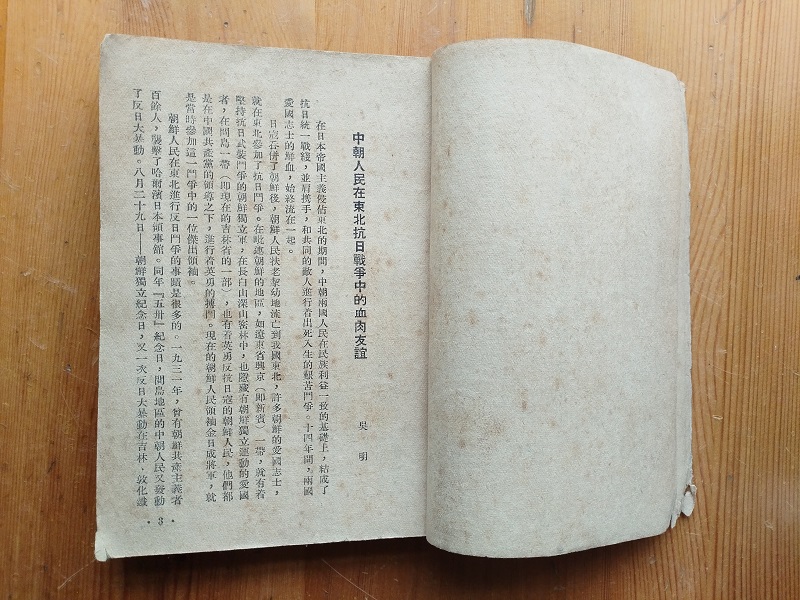 中朝人民在東北抗日戰爭中的血肉友誼
吳明
在日本帝國主義侵佔東北的期間，中朝兩國人民在民族利益一致的基礎上，結成了
抗日統一戰綫，並肩携手，和共同的敵人進行着出死入生的艱苦鬥爭。十四年間，兩國
愛國志士的鮮血，始終流在一起。
日寇吞併了朝鮮後，朝鮮人民扶老挈幼地流亡到我國東北，許多朝鮮的愛國志士，
就在東北參加了抗日鬥爭。在毗連朝鮮的地區，如遼東省興京（即新賓）一帶，就有着
堅持抗日武裝鬥爭的朝鮮獨立軍，在長白山深山密林中，也隱藏有朝鮮獨立運動的愛國
者，在間島一帶（即現在的吉林省的一部），也有着英勇反抗日寇的朝鮮人民，他們都
是在中國共產黨的領導之下，進行着英勇的搏鬥。現在的朝鮮人民領袖金日成將軍，就
是當時參加這一鬥爭中的一位傑出領袖。
朝鮮人民在東北進行反日鬥爭的事蹟是很多的。一九三一年，曾有朝鮮共產主義者
百餘人，襲擊了哈爾濱日本領事館。同年『五卅』紀念日，間島地區的中朝人民又發動
了反日大暴動。八月二十九日——朝鮮獨立紀念日，又一次反日大暴動在吉林、敦化議
·3·